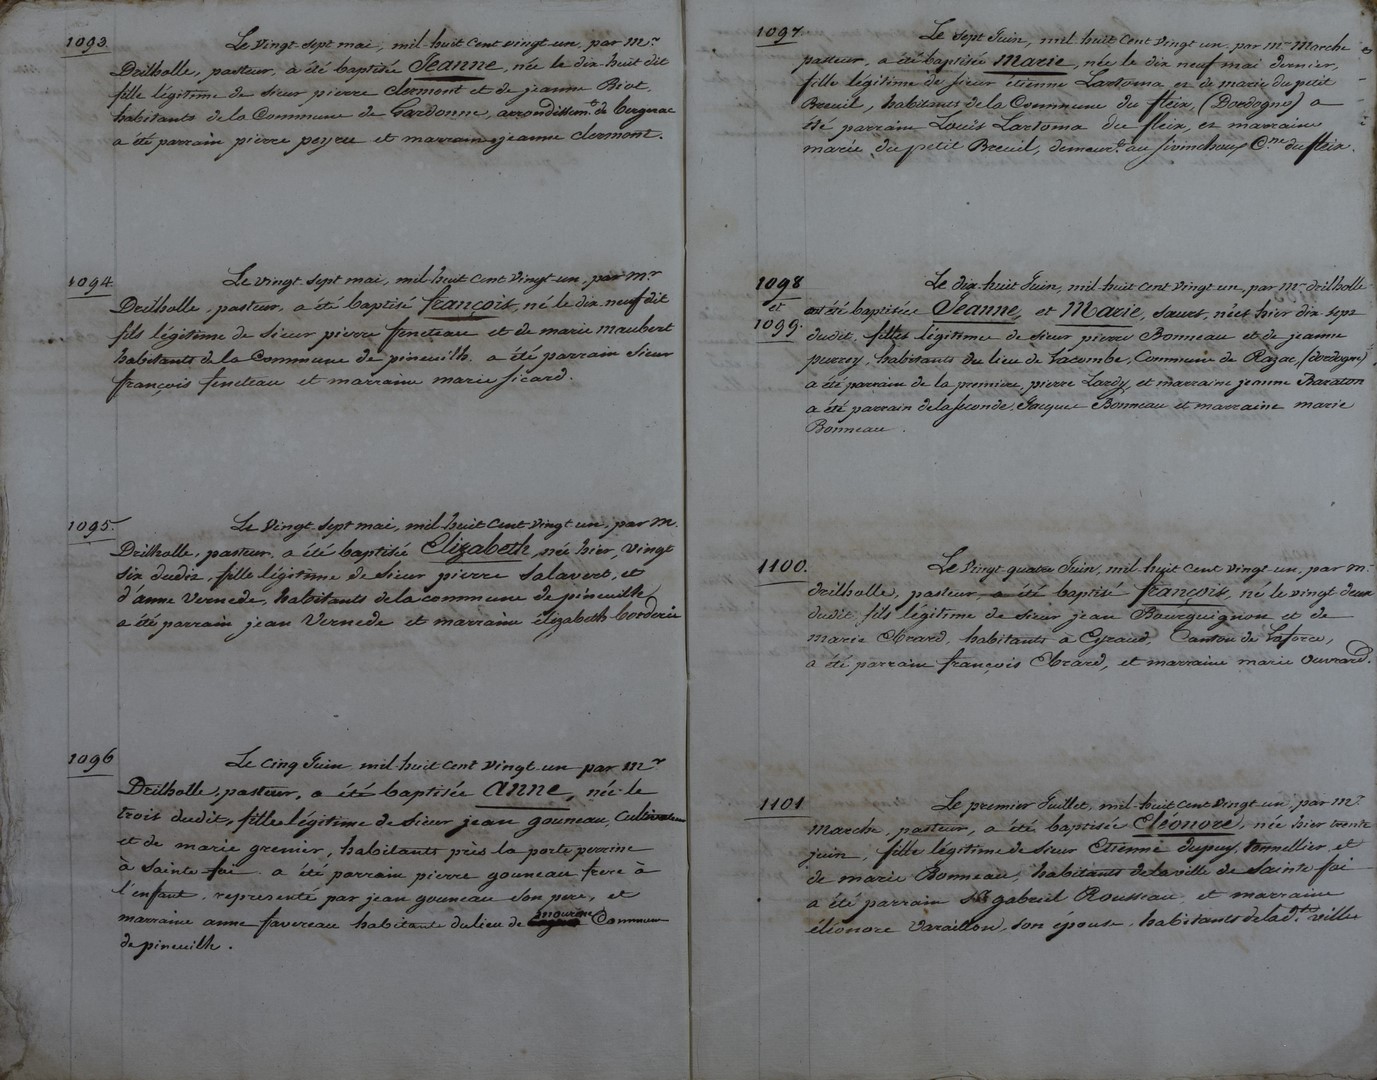 1093
Le Vingt sept mai, mil huit Cent vingt un, par Mr.
Drilholle, pasteur, a été baptisée Jeanne, née le dix huit dit
fille légitime de sieur pierre Clermont et de jeanne Biot,
habitants de la Commune de Gardonne, arrondissemt. de bergerac
a été parrain pierre peyru et marraine jeanne Clermont.
1094
Le vingt sept mai, mil huit Cent Vingt un, par Mr
Drilholle, pasteur, a été baptisé françois, né le dix neuf dit
fils légitime de sieur pierre feneteau et de marie maubert
habitants de la Commune de pineuilh. a été parrain Sieur
françois feneteau et marraine marie sicard.
1095.
Le Vingt sept mai, mil huit Cent vingt un, par M.
Drilholle, pasteur, a été baptisée Elizabeth, née hier, Vingt
six dudit, fille légitime de sieur pierre Salavert, et
d'anne Vernede, habitants de la commune de pineuilh,
a été parrain jean Vernede et marraine élizabeth borderie
1096
Le Cinq Juin mil huit Cent Vingt un par Mr
Drilholle, pasteur, a été baptisée Anne, née le
trois dudit, fille légitime de sieur jean gouneau, Cultivateur
et de marie grenier, habitants près la porte perrine
à Sainte foi. a été parrain pierre gouneau frere à
l'enfant, representé par jean gouneau son pere, et
marraine anne favereau habitante du lieu de Commune
de pineuilh.
1097.
Le Sept Juin, mil huit Cent Vingt un par Mr Marche
pasteur, a été baptisée Marie, née le dix neuf mai dernier,
fille légitime de sieur étienne Lartoma et de marie du petit
Breuil, habitants de la Commune du fleix, (Dordogne) a
été parrain Louis Lartoma du fleix, et marraine
marie du petit Breuil, demeurt. au Cne du fleix.
1098
et
1099.
Le dix huit Juin, mil huit Cent Vingt un, par Mr drilholle
ont été baptisées Jeanne, et Marie, sœurs, nées hier dix sept
dudit, filles légitimes de sieur pierre Bonneau et de jeanne
habitants du lieu de Lacombe, Commune de Razac, (dordogne)
a été parrain de la premiere, pierre Lardy, et marraine jeanne Baraton
a été parrain de la seconde, Jacques Bonneau et marraine marie
Bonneau.
1100.
Le Vingt quatre Juin, mil huit Cent vingt un, par Mr.
drilholle, pasteur, a été baptisé françois, né le vingt deux
dudit, fils légitime de sieur jean Bourguignon et de
marie Ebrard, habitants à Eyraud, Canton de Laforce,
a été parrain françois Ebrard, et marraine marie Ouvrard.
1101
Le premier Juillet, mil huit Cent Vingt un, par Mr.
Marche, pasteur, a été baptisée Eléonore, née hier trente
juin, fille légitime de sieur Etienne dupuy, tonnellier, et
de marie Bonneau, habitants de la ville de Sainte foi
a été parrain Sr gabriel Rousseau, et marraine
éléonore Varaillon, son épouse, habitants de la dte. ville